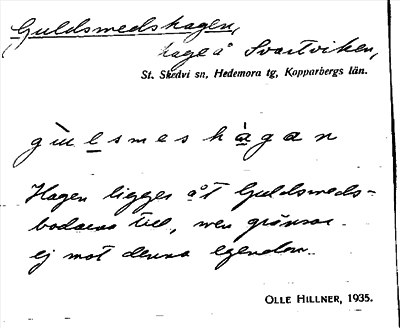 Guldsmedshagen,
hage å Svartviken,
St. Skedvi sn, Hedemora tg, Kopparbergs län.
gu̇lsmeshàgan
Hagen ligger åt Guldsmeds-
bodarna till, men gränsar
ej mot denna egendom.
OLLE HILLNER, 1935.